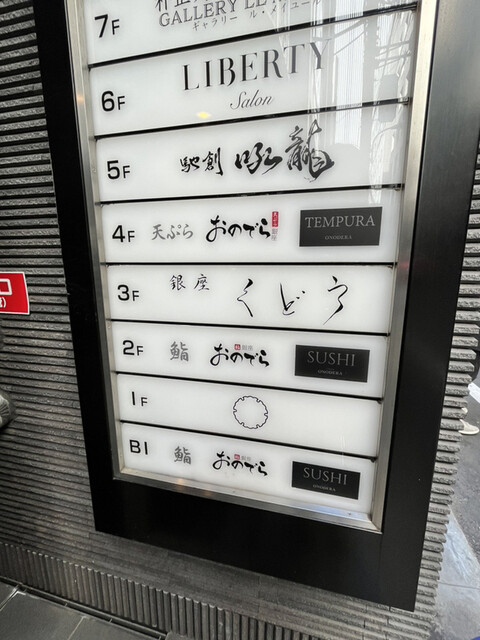 7F
GALLERY LE
ギャラリー ル・メイユール
6F LIBERTY
Salon
5F 馳創 吼龍
4F 天ぷら おのでら 銀座 TEMPURA
ONODERA
3F 銀座 くどう
2F 鮨 おのでら 銀座 SUSHI
ONODERA
1F
B1 鮨 おのでら 銀座 SUSHI
ONODERA